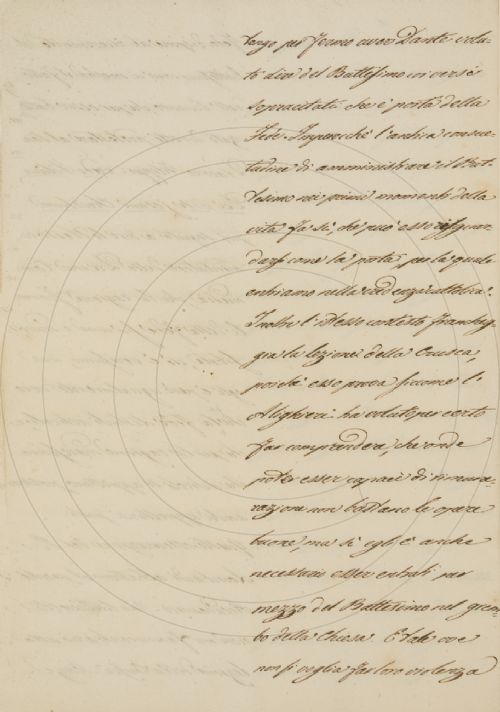 tengo per fermo aver Dante volu-
to dire del Battesimo coi versi
sopracitati che è porta della
Fede. Imperocchè l'antica consue-
tudine di amministrare il Bat-
tesimo nei primi momenti della
vita fa sì, che può esso risguar-
darsi come la porta, per la quale
entriamo nella credenza cattolica.
Inoltre l'istesso contesto
la lezione della Crusca,
poichè esso prova siccome l'
Alighieri ha voluto per certo
far comprendere, che onde
poter esser capaci di rimune-
razione non bastano le opere
buone, ma si egli è anche
necessario esser entrati per
mezzo del Battesimo nel grem-
bo della Chiesa. E tale ove
non si voglia far loro violenza